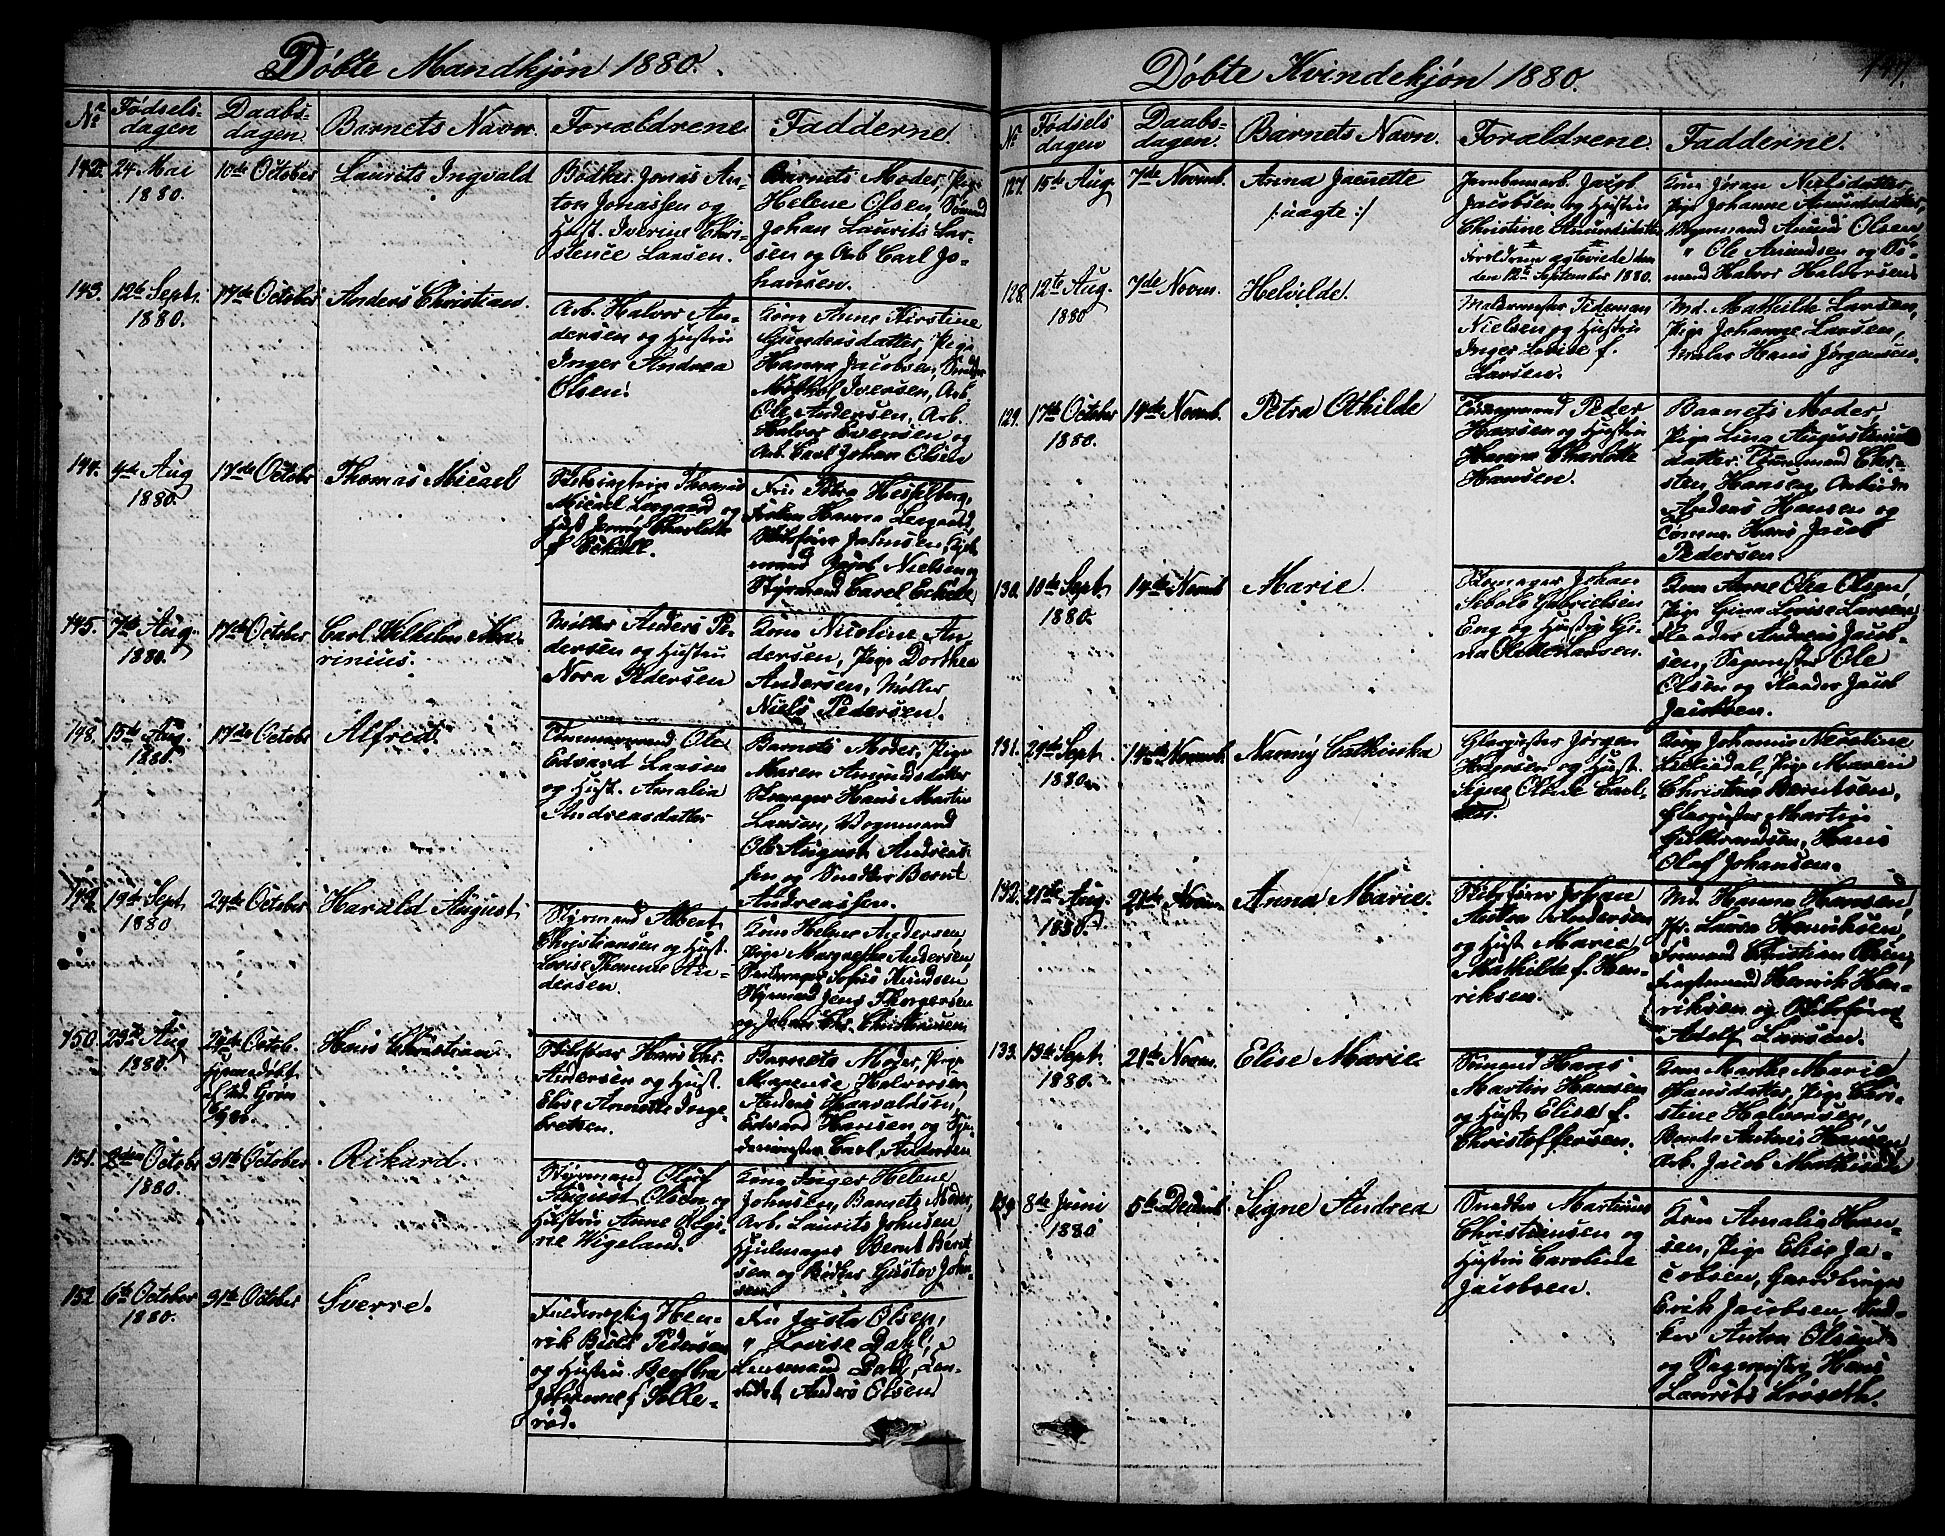 Døbte Mandkjøn 1880.
No Fødsels-dagen Daabs-dagen. Barnets Navn. Forældrene Fadderne.
142. 24 Mai 1880. 10de October Laurits Ingvald
Bødker Jonas An-
ton Jonassen og
Hust. Iverine Chri-
stence Larsen.
Barnets Moder, Pige
Helene Olsen, Sømand
Johan Laurits Lar-
sen og Arb. Carl Jo-
hansen.
143. 12te Sept. 1880. 17de October Anders Christian.
Arb. Halvor An-
dersen og Hustru
Inger Andrea
Olsen.
Kone Anne Kirstine
Gundersdatter, Pige
Hanna Jacobsen,
Iversen, Arb.
Ole Andersen, Arb.
Halvor Evensen og
Arb. Carl Johan Olsen
144. 4de Aug 1880. 17de Octobr Thomas Micael
Thomas
Micael Leegaard og
Hust. Jenny Charlotte
f. Eckell.
Fru Petra Hesselberg,
Frøken Hanna Leegaard,
Skibsfører Jahnsen,
Jacob Nielsen og
Styrmand Carel Eckell
145. 7de Aug. 1880. 17de October Carl Wilhelm Ma-
rinius.
Møller Anders Pe-
dersen og Hustru
Nora Pedersen
Kone Nicoline An-
dersen, Pige Dorthea
Andersen, Møller
Niels Pedersen.
148. 15de Aug. 1880. 17de Octobr Alfred.
Tømmermand Ole
Edvard Larsen
og Hust. Amalia
Andreasdatter
Barnets Moder, Pige
Maren Amundsdatter
Hans Martin
Larsen, Vognmand
Ole August Andreas-
sen og Snedker Bernt
Andreassen.
149. 19de Sept. 1880 24de October Harald August
Styrmand Albert
Christiansen og Hust.
Lovise Thomine An-
dersen.
Kone Helene Andersen,
Pige Margrethe Andersen,
Sofus Knudsen
Styrmand Jens Thorgersen
og Johan Chr. Christiansen
150. 23de Aug 1880. 24de Octob. Hans Christian
hjemmedøbt
af Md. Grøn
Hans Chr.
Andersen og Hust.
Elise Annette Inge-
bretsen.
Barnets Moder, Pige
Marense Halvorsen
Anders Harvaldsen,
Edvard Hansen og
Carl Andersen
151. 2den Octobr 1880. 31te October Rikard.
Styrmand Oluf
August Olsen og
Hustru Anne Regi-
ne Wigeland.
Kone Inger Helene
Johnsen, Barnets Moder,
Arb. Laurits Johnsen
Hjulmager Bernt Bernt-
sen og Bødker Gustav John-
sen
152 6te October 1880. 31te October Sverre.
Fuldmægtig Hen-
rik Buch Pedersen
og Hustru Barbra
Johanne f. Solle-
rød.
Fru Justa Olsen,
" Lovise Dahl,
Lensmand Dahl,
Anders Olsen
Døbte Kvindekjøn 1880.
No Fødsels dagen Daabs-dagen. Barnets Navn. Forældrene. Fadderne.
127. 15de Aug. 7de Novemb. Anna Jaenette
/: uægte :/
Jernbanearb. Jacob
Jacobsen og Hustru
Christine Amundsdatter
Foreldrene ægteviede den
den 12te September 1880.
Kone Jøran Nielsdatter,
Pige Johanne Amundsdatter,
Vognmand Amund Olsen
" Ole Amundsen og Sø-
mand Halvor Halvorsen
128. 12te Aug. 1880 7de Novm. Helvilde.
Malermester Pedeman
Nielsen og Hustru
Inger Lovise f.
Larsen.
Md. Mathilde Larsen,
Pige Johanne Larsen,
Maler Hans Jørgensen.
129. 17de October 1880. 14de Novmb. Petra Othilde
Tømmermand Peder
Hansen og Hustru
Hanna Charlotte
Hansen.
Barnets Moder,
Pige Lina Augustinus-
datter, Tømmermand Chri-
sten Hansen, Arbeider
Anders Hansen og
Tømmer. Hans Jacob
Pedersen.
130. 10de Sept. 1880. 14de Novmb Marie.
Johan
Gabrielsen
Eng og Hustru Gi-
na Hansen.
Kone Anne Olea Olsen,
Pige Gina Lovise Larsen,
Andreas Jacob-
sen, Sagmester Ole
Olsen og Jacob
Jacobsen.
131. 24de Sept. 1880. 14de Novmb. Nanny Cathinka
Glaspuster Jørgen
og Hust.
Signe Oline Carl-
sen.
Kone Johanne Kirstine
Pige Maren
Christine Berntsen,
Glaspuster Martin
Gulbrandsen, Hans
Olaf Johansen.
132. 25de Aug. 1880. 21de Novm. Anna Marie.
Skibsfører Johan
Anton Andersen
og Hust. Marie
Mathilde f. Hen-
riksen.
Md. Hanna Hansen,
Laura Henriksen,
Christian Olsen,
Henrik Hen-
riksen og Skibsfører
Adolf Larsen.
133. 19de Sept. 1880. 21de Novm. Elise Marie
Sømand Hans
Martin Hansen
og Hust. Elise f.
Christoffersen.
Kone Marthe Marie
Hansdatter, Pige Chri-
stine Halvorsen,
Bonde Anders Hansen
Arb. Jacob Mathisen
134. 8de Juni 1880 5te Decemb. Signe Andrea
Snedker Martinus
Christiansen og
Hustru Caroline
Jacobsen.
Kone Amalie Han-
sen, Pige Elise Ja-
cobsen, Gaardbruger
Erik Jacobsen, Sned-
ker Anton Olsen
og Sagmester Hans
Laurits Løseth.